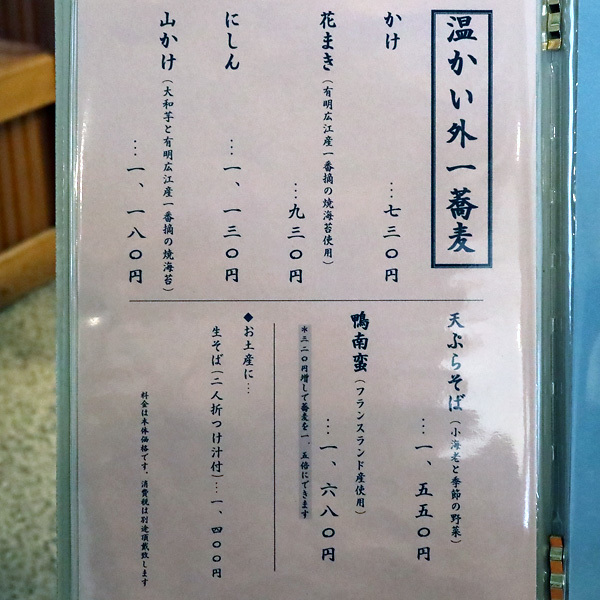 温かい外一蕎麦
かけ
…七三〇円
花まき（有明広江産一番摘の焼海苔使用）
…九三〇円
にしん
…一、一三〇円
山かけ（大和芋と有明広江産一番摘の焼海苔）
…一、一八〇円
天ぷらそば（小海老と季節の野菜）
…一、五五〇円
鴨南蛮（フランスランド産使用）
…一、六八〇円
＊三二〇円増しで蕎麦を一、五倍にできます
◆お土産に…
生そば（二人折つけ汁付）…一、四〇〇円
料金は本体価格です。消費税は別途頂戴致します